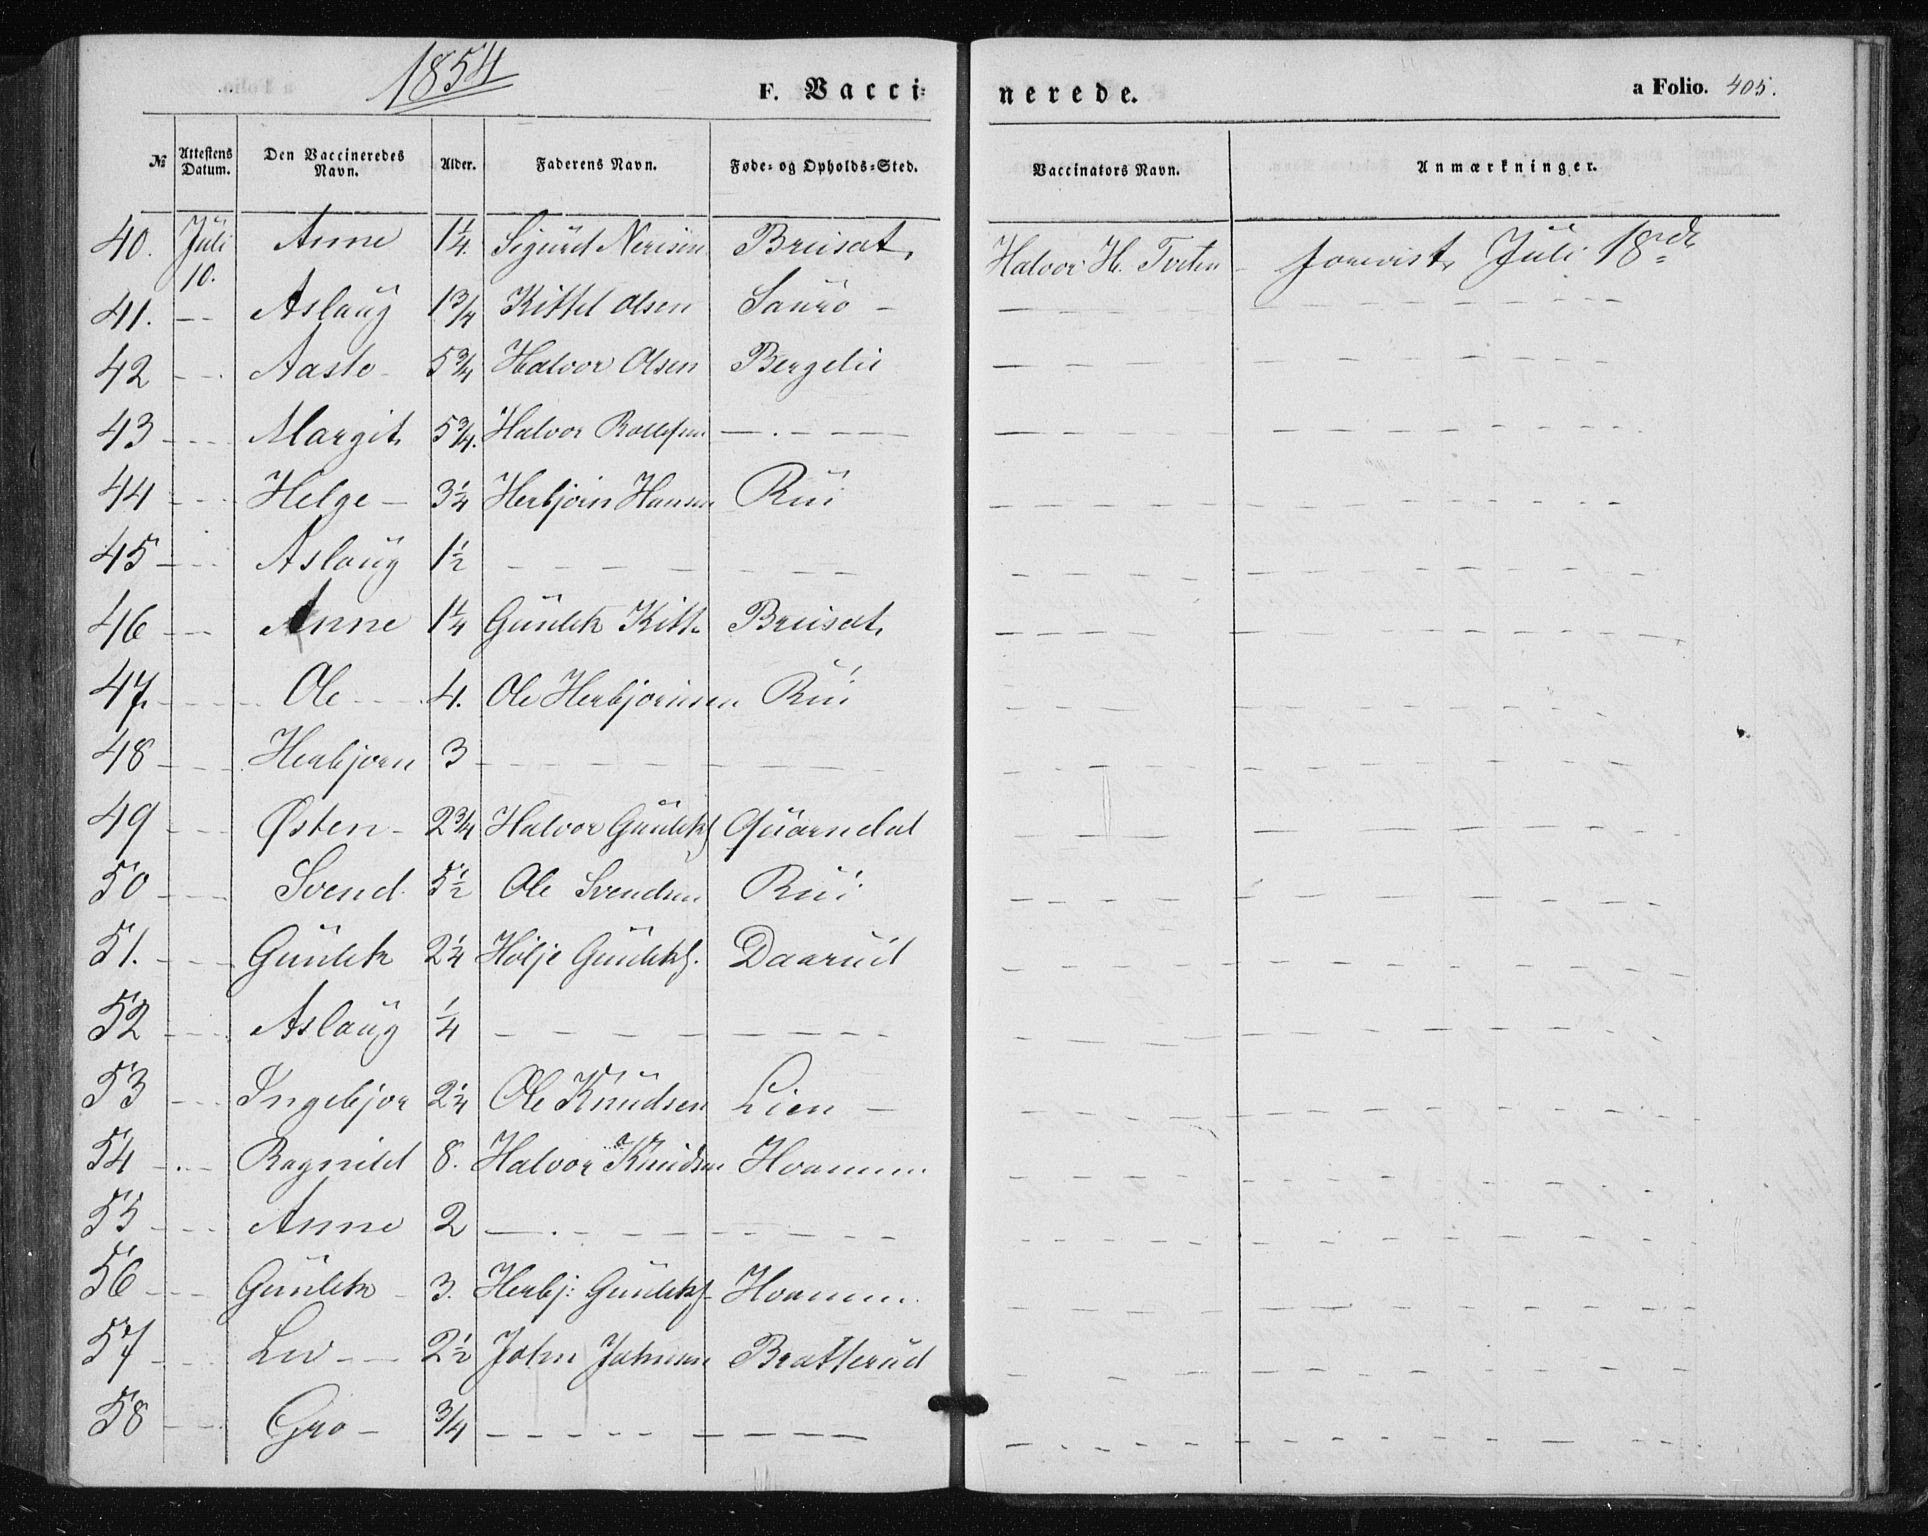 1854
F. Vacci-
nerede.
a Folio. 405.
No Attestens Datum. Den Vaccineredes Navn. Alder. Faderens Navn. Føde- og Opholds-Sted. Vaccinators Navn. Anmærkninger.
40. Juli 10. Anne 1¼. Sigurd Nerisen Brusat. Halvor H. Tveten - forevist Juli 18de
41. - - Aslaug 1¾ Kittel Olsen Sauro -
42 - - Aaste - 5¾ Halvor Olsen Bergelie
43 - - - Margit 5¾. Halvor Rollefsen - . - - -
44 - - - Helge - 3¼ Herbjörn Hansen Rui
45 - - - Aslaug 1½ - - - - - - - -
46 - - Anne 1¼ Gunlek Kitt. Brusat
47. - - - - Ole - - 4. Ole Herbjørnsen Rui
48 - - - Herbjorn 3 - - - - - - - - - -
49 - - - Østen - 2¾ Halvor Gunleks. Quarndal
50 - - - Svend. 5½ Ole Svendsen Rui
51. - - - Gunlek 2¼ Hølje Gunleks. Daarud
52 - - - Aslaug ¼ - - - - - - - -
53 - - - Ingebjor 2¼ Ole Knudsen Lien -
54 - . - Ragnild 8. Halvor Knudsen Hvamm
55 - - - Anne 2 - . - - - - - - -
56 - - - Gunlek - 3. Herbj: Gunleks. Hvamm.
57 - - - Liv - - 2½ John Johnsen Bratterud
58 - - - Gro - ¾ - - - - - - - - -